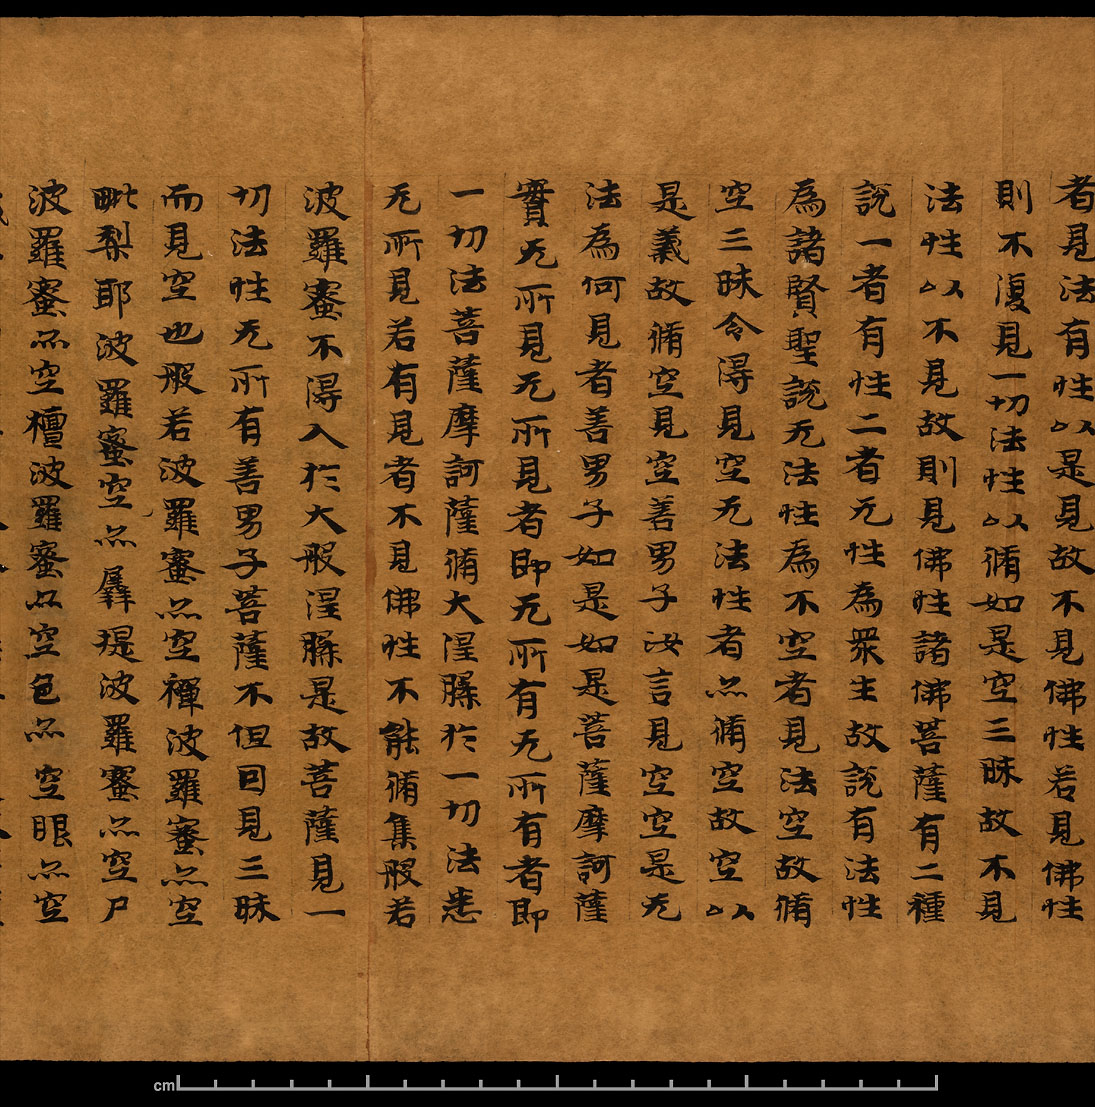 者見法有性以是見故不見佛性若見佛性
則不復見一切法性以脩如是空三昧故不見
法性以不見故則見佛性諸佛菩薩有二種
說一者有性二者无性為眾生故說有法性
為諸賢聖說无法性為不空者見法空故脩
空三昧令得見空无法性者亦脩空故空以
是義故脩空見空善男子汝言見空空是无
法為何見者善男子如是如是菩薩摩訶薩
實无所見无所見者即无所有无所有者即
一切法菩薩摩訶薩脩大涅槃於一切法悉
无所見若有見者不見佛性不能脩集般若
波羅蜜不得入於大般涅槃是故菩薩見一
切法性无所有善男子菩薩不但因見三昧
而見空也般若波羅蜜亦空禪波羅蜜亦空
毗梨耶波羅蜜空亦羼提波羅蜜亦空尸
波羅蜜亦空檀波羅蜜亦空色亦空眼亦空
cm